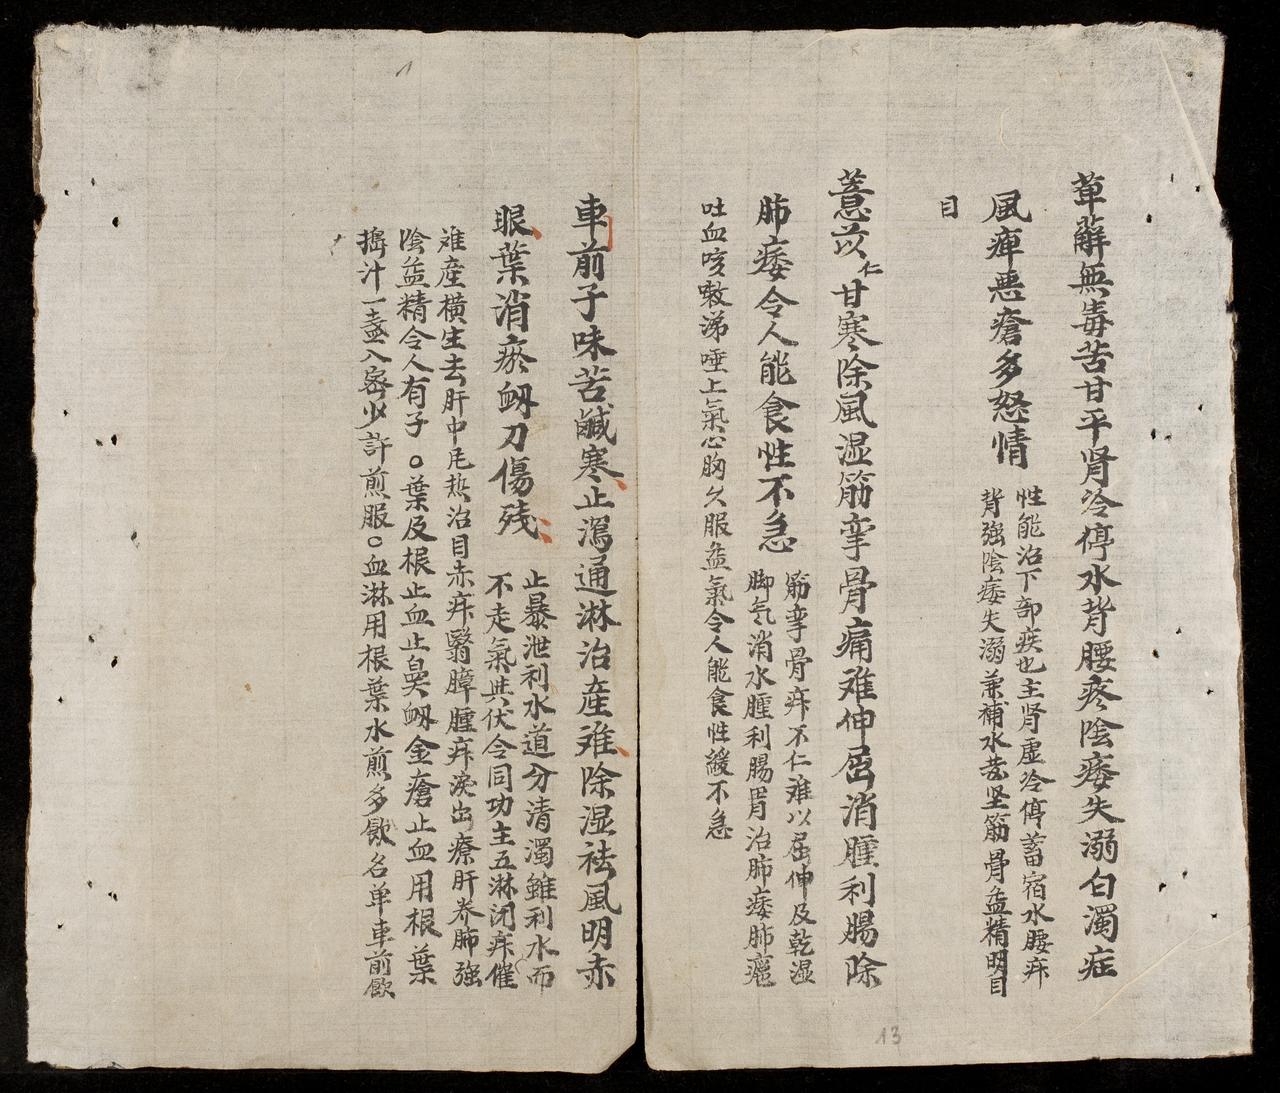 萆薢無毒苦甘平肾冷停水背腰疼陰痿失溺白濁症
風痺悪瘡多怒情
性能治下部疾也主肾虚冷停蓄宿水腰疼
背強陰痿失溺兼補水臟坚筋骨益精明目
目
薏苡仁甘寒除風湿筋挛骨痛难伸屈消腫利腸除
肺痿令人能食性不急
筋挛骨疼不仁难以屈伸及乾湿
脚气消水腫利腸胃治肺痿肺癰
吐血咳嗽涕唾上氣心胸久服益氣令人能食性緩不急
車前子味苦鹹寒止瀉通淋治産难除湿祛風明赤
眼葉消瘀衂刀傷残
止暴泄利水道分清濁雖利水而
不走氣與伏令同功主五淋闭疼催
难産横生去肝中风热治目赤疼翳障腫疼淚出療肝养肺強
陰益精令人有子○葉及根止血止鼻衂金瘡止血用根葉
搗汁一盏入密少許煎服○血淋用根葉水煎多飲名单車前飲
13